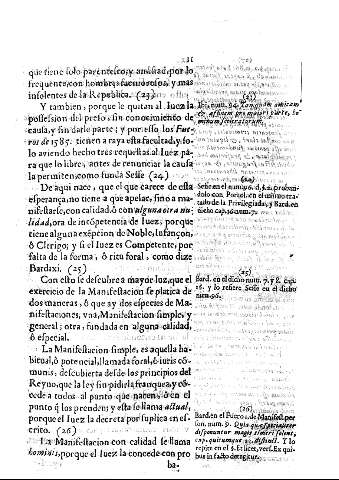 que tiene solo parentesco, y amistad, por lo
frequente, con hombres facinorosos, y mas
insolentes de la Republica. (23)
Y tambien, porque le quitan al Iuez la
possession del preso, sin conocimiento de
causa, y sin darle parte; y por esso los Fue-
ros de 1585. tienen a raya esta facultad, y so
lo aviendo hecho tres requestas al Iuez pa
ra que lo libre, antes de renunciar la causa
la permiten, como fundà Sesse (24)
De aqui nace, que el que carece de esta
esperança, no tiene à que apelar, sino a ma
nifestarse, con calidad, ò con alguna otra nu-
lidad, ora de incõpetencia de Iuez, porque
tiene alguna exépcion de Noble, Infançon,
ò Clerigo; y si el Iuez es Competente, por
falta de la forma, ò ritu foral, como dize
Bardaxi. (25)
Con esto se descubre a mayor luz, que el
exercicio de la Manifestacion se platica de
dos maneras, ò que ay dos especies de Ma-
nifestaciones, vna, Manifestacion simple, y
general; otra, fundada en alguna calidad,
ò especial.
La Manifestacion simple, es aquella ha-
bitual, ò potencial, llamada foral, ò iuris cõ-
munis; descubierta desde los principios del
Reyno, que la ley sin pidirla franquea, y cõ-
cede a todos al punto que nacen, ò en el
punto q̃ los prenden; y esta se llama actual,
porque el Iuez la decreta por suplica en es-
crito. (26)
La Manifestacion con calidad se llama
homi porque el Iuez la concede con pro
ba-
(23)
Ibi, num. 94. Tanquam amicam
(24)
Sese en el num.
do con Portol. en el mismo tra-
tado de la Privilegiada, y Bard. en
dicho cap. num. 7.
(25)
Bard. en el dicho num. 7. y 8. cap.
16. y lo refiere Sesse en el dicho
num. 96.
(26)
Bard. en el Fuero 2. de Manifest. per
son. num. 9. Quis que specialiter
disponuntur magis timeri solent,
cap. quicumque distull. Y lo
repite en el § Et licet, vers. Ex qui-
bus in facto detegitur.